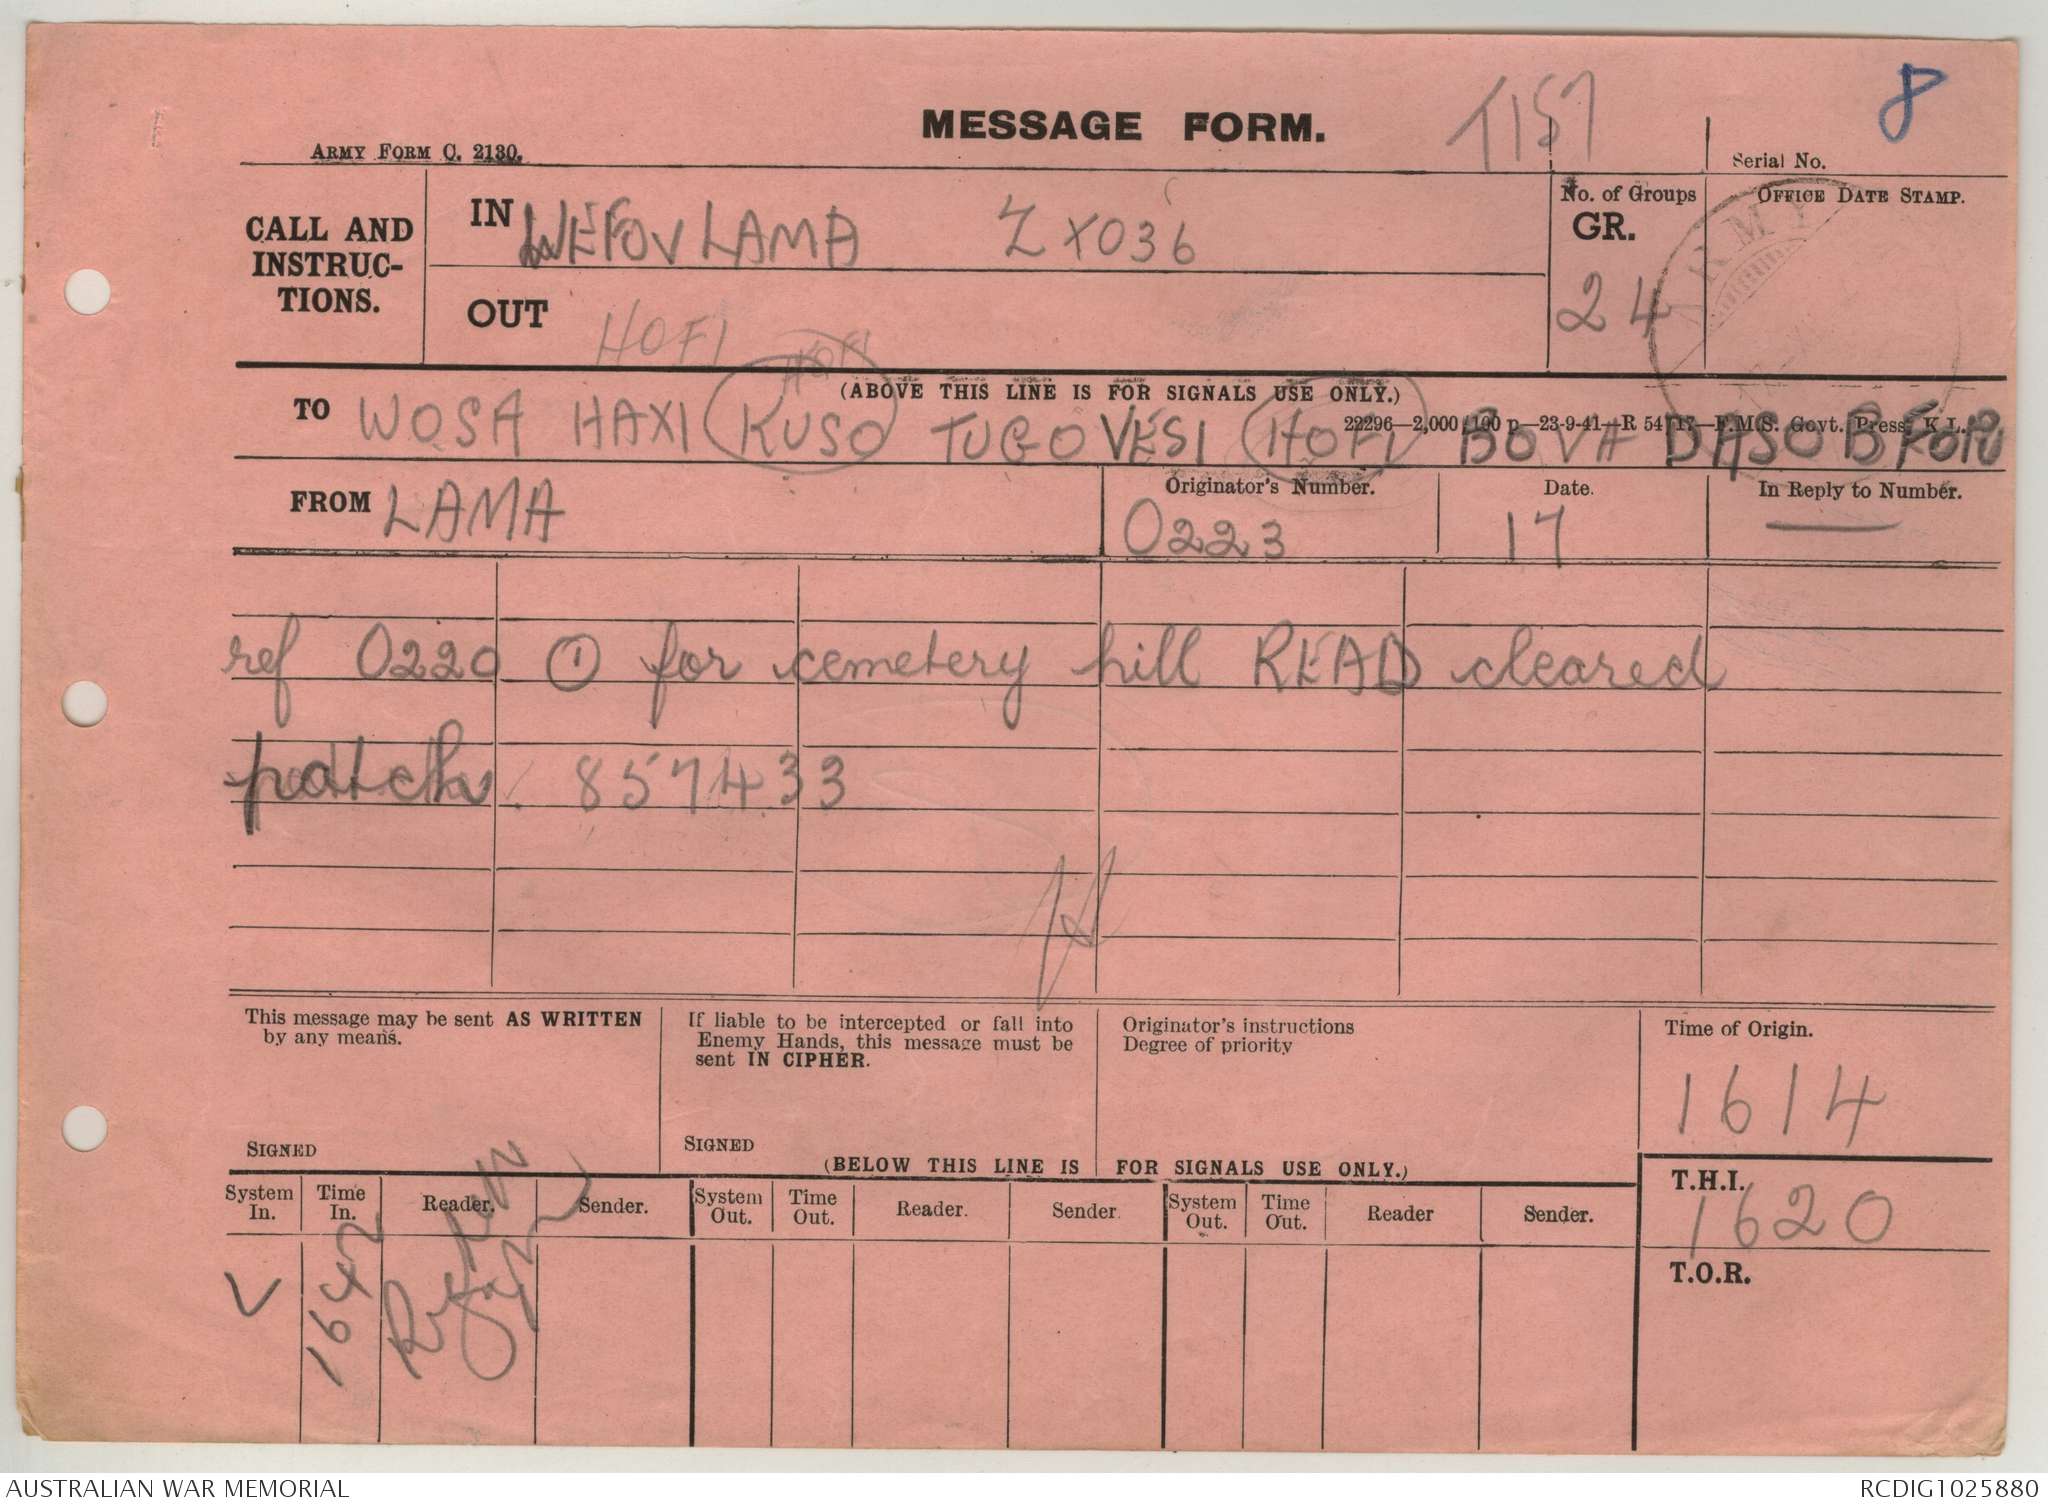 8
MESSAGE FORM.
T157
ARMY FORM C. 2130.
Serial No.
CALL AND INSTRUC-TIONS.
IN LAMA ZX036
No. of Groups
GR.
24
OFFICE DATE STAMP.
ARMY
OUT HOFI
HOFI
(ABOVE THIS LINE IS FOR SIGNALS USE ONLY.)
22296—2,000/100 p—23-9-41—R 54/17—F.M.S. Govt. Press, K.L.
TO WOSA HAXI KUSO TUGO VESI HOFI BOVA DASO
FROM LAMA
Originator's Number.
0223
Date.
17
In Reply to Number.
—
ref 0220 ① for cemetery hill READ cleared
patch. 857433
This message may be sent AS WRITTEN
by any means.
If liable to be intercepted or fall into
Enemy Hands, this message must be
sent IN CIPHER.
Originator's instructions
Degree of priority
Time of Origin.
1614
SIGNED
SIGNED
(BELOW THIS LINE IS FOR SIGNALS USE ONLY.)
T.H.I.
1620
T.O.R.
System In.
Time In.
Reader.
Sender.
System Out.
Time Out.
Reader.
Sender.
System Out.
Time Out.
Reader
Sender.
1642
AUSTRALIAN WAR MEMORIAL
RCDIG1025880